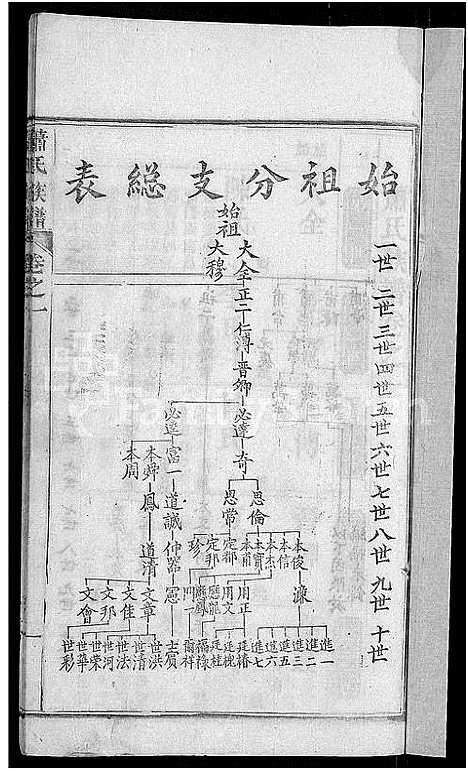 始祖分支總表
一世 二世 三世 四世 五世 六世 七世 八世 九世 十世
始祖
大全 正二 仁溥 晋卿
大穆
必達 奇
必逵
思倫
思常
富一 道誠 仲器 憲 士賓
本舜 鳳 道清
本周
本俊 濂
本信
本杰
本寶
本甫
定都
定邦
珍
用正
用文
應龍
應鳳
門一
文章
文佳
文邦
文會
進一
進二
進三
進五
進六
進七
廷椿
廷槐
廷桂
福祿
爾祥
世洪
世清
世法
世河
世榮
世華
世彩
蕭氏族譜
卷之一